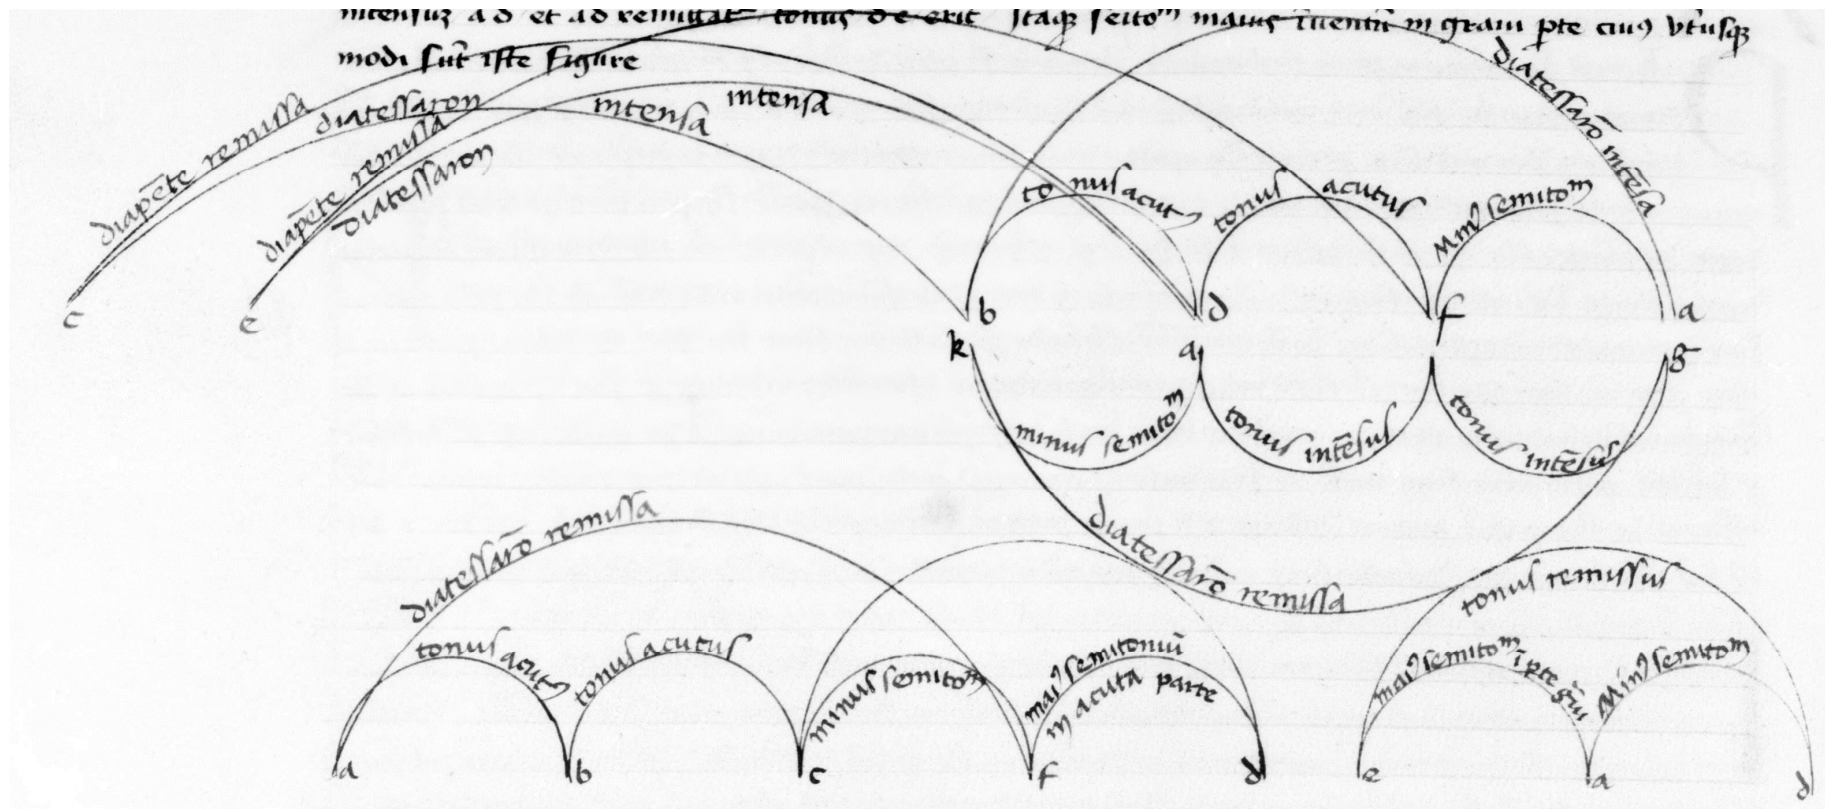 intensuz ad et ad remittat tonus d e erit Itaqꝫ seitoᵐ maius īuentū in graui ꝑte cuiꝰ vtrusqꝫ
modi sūt iste figure
diapēte remissa
diatessaron
intensa
diapēte remissa
diatessaron
intensa
diatessarō intēsa
tonus acutꝰ
tonus acutus
Minꝰ semitoᵐ
c e b d f a
k a g
minus semitoᵐ
tonus intēsus
tonus intēsus
diatessarō remissa
diatessarō remissa
tonus remissus
tonus acutꝰ
tonus acutus
minus semitoᵐ
maiꝰ semitoniū
in acuta parte
maiꝰ semitoᵐ ī ꝑte
Minꝰ semitoᵐ
a b c f d e a d